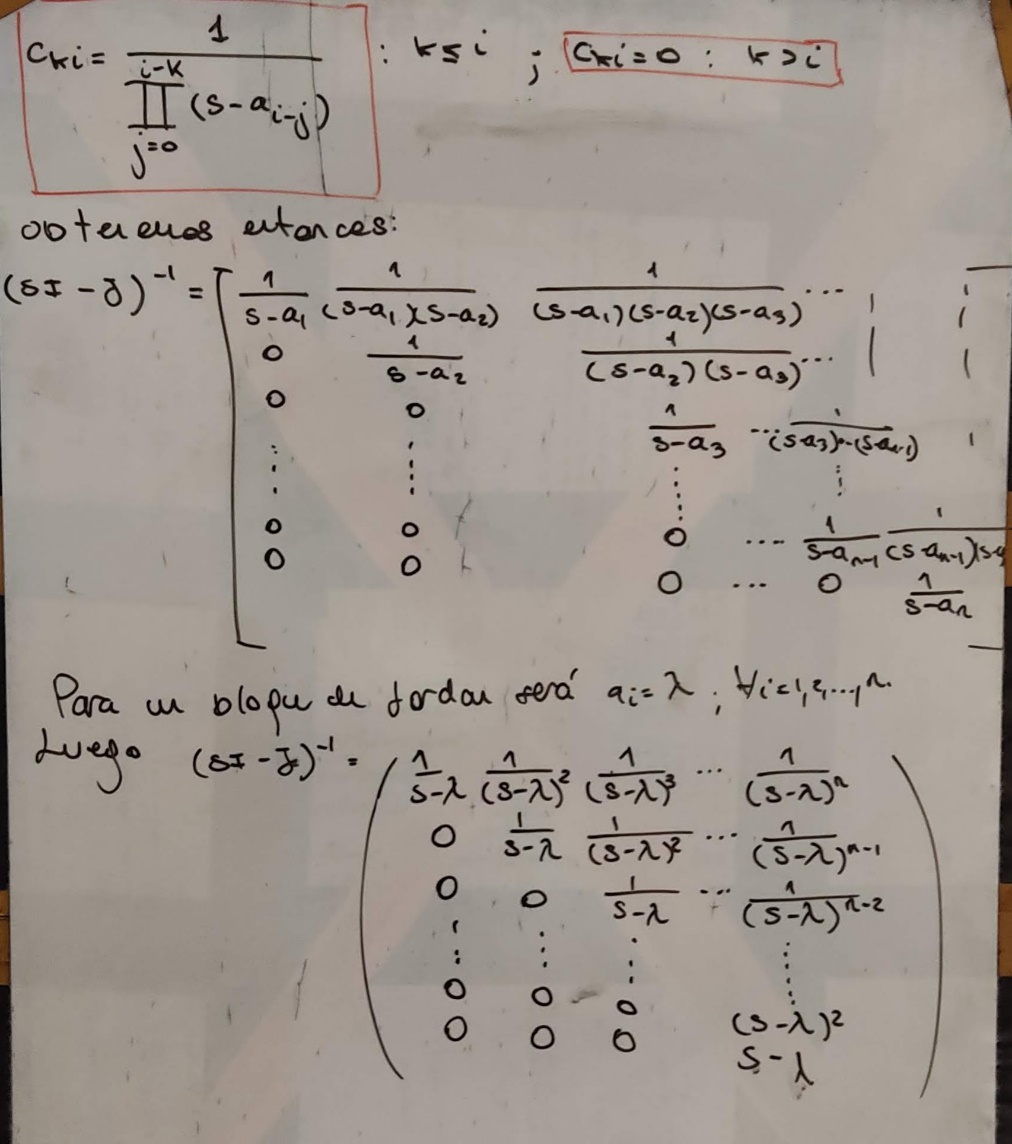 c_{ki} = \frac{1}{\prod_{j=0}^{i-k} (s-a_{i-j})} : k ≤ i ; c_{ki} = 0 : k > i
obtenemos entonces:
(sI - J)^{-1} = [ \frac{1}{s-a_1} \frac{1}{(s-a_1)(s-a_2)} \frac{1}{(s-a_1)(s-a_2)(s-a_3)} ...
0 \frac{1}{s-a_2} \frac{1}{(s-a_2)(s-a_3)} ...
0 0 \frac{1}{s-a_3} ... \frac{1}{(s-a_3)...(s-a_{n-1})}
0 0 0 ... \frac{1}{s-a_{n-1}} \frac{1}{(s-a_{n-1})(s-a
0 0 0 ... 0 \frac{1}{s-a_n} ]
Para un bloque de Jordan será a_i = λ ; ∀i=1,2,...,n.
Luego (sI - J)^{-1} = ( \frac{1}{s-λ} \frac{1}{(s-λ)^2} \frac{1}{(s-λ)^3} ... \frac{1}{(s-λ)^n}
0 \frac{1}{s-λ} \frac{1}{(s-λ)^2} ... \frac{1}{(s-λ)^{n-1}}
0 0 \frac{1}{s-λ} ... \frac{1}{(s-λ)^{n-2}}
0 0 0 (s-λ)^2
0 0 0 s-λ )